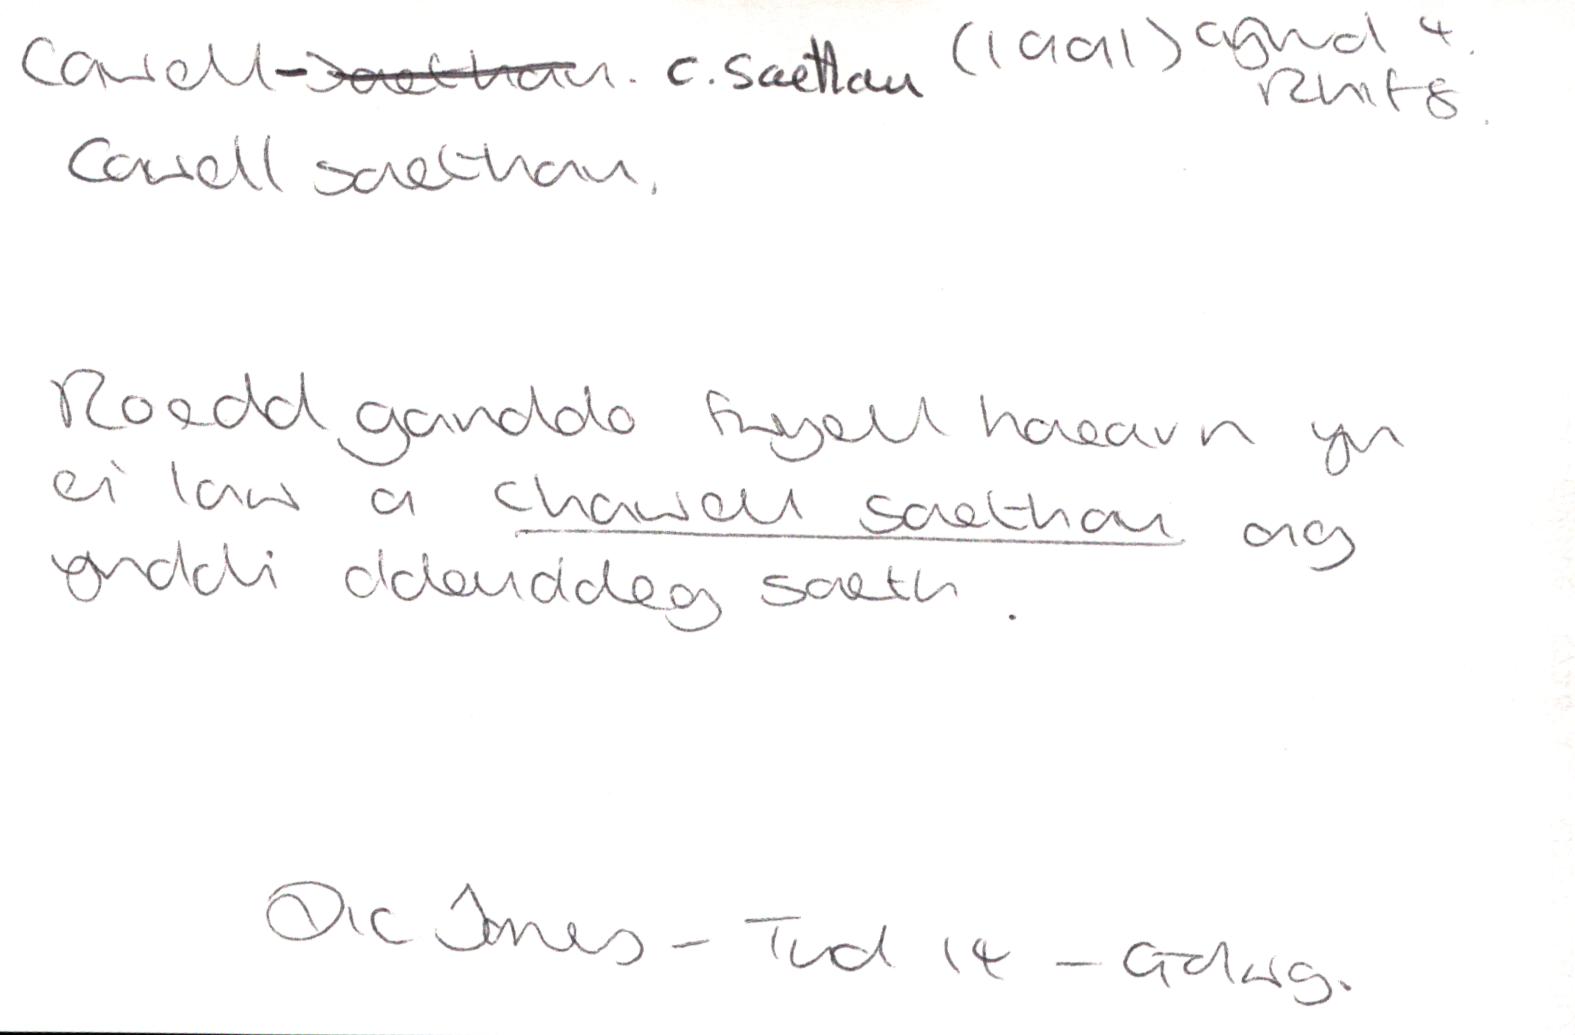 Cawell-saethau. c. saethau (1991) Cyfrol 4.
Rhif 8.
Cawell saethau.
Roedd ganddo fwyell haearn yn
ei law a chawell saethau ag
ynddi ddeuddeg saeth.
Dic Jones - Tud 14 - Golwg.